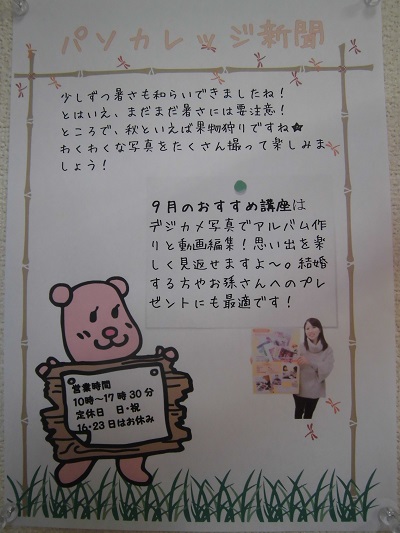 パソカレッジ新聞
少しずつ暑さも和らいできましたね！
とはいえ、まだまだ暑さには要注意！
ところで、秋といえば果物狩りですね★
わくわくな写真をたくさん撮って楽しみま
しょう！
９月のおすすめ講座は
デジカメ写真でアルバム作
りと動画編集！思い出を楽
しく見返せますよ～。結婚
する方やお孫さんへのプレ
ゼントにも最適です！
営業時間
10時～17時30分
定休日　日・祝
16・23日はお休み